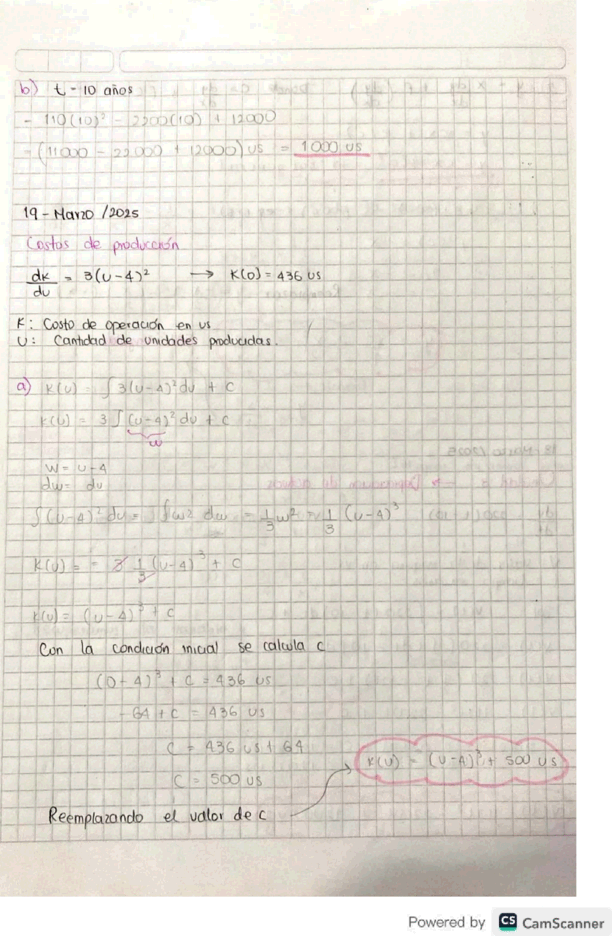 b) t = 10 años
= 110(10)² - 2200(10) + 12000
= (11000 - 22000 + 12000) us = 1000 us
19 - Marzo / 2025
Costos de producción
dk/du = 3(u-4)² → K(0) = 436 us
K: Costo de operación en us
U: Cantidad de unidades producidas.
a) K(u) = ∫ 3(u-4)² du + C
K(u) = 3 ∫ (u-4)² du + C
w
W = u-4
dw = du
∫(u-4)² du = ∫ w² dw = 1/3 w² = 1/3 (u-4)³
K(u) = - 3 1/3 (u-4)³ + C
K(u) = (u-4)³ + C
Con la condición inicial se calcula C
(0-4)³ + C = 436 us
-64 + C = 436 us
C = 436 us + 64
C = 500 us
K(u) = (u-4)³ + 500 us
Reemplazando el valor de C
Powered by CS CamScanner